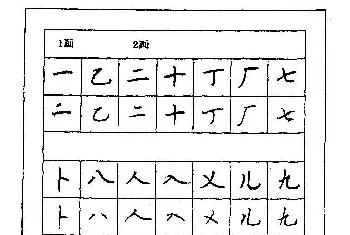 1画 2画
一 乙 二 十 丁 厂 七
二 乙 二 十 丁 厂 七
卜 八 人 入 乂 儿 九
卜 八 人 入 乂 儿 九